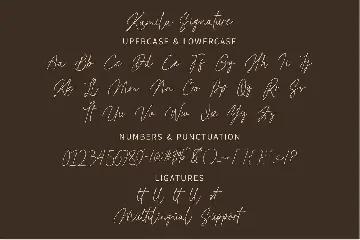 Kamila Signature
UPPERCASE & LOWERCASE
Aa Bb Cc Dd Ee Ff Gg Hh Ii Jj
Kk Ll Mm Nn Oo Pp Qq Rr Ss
Tt Uu Vv Ww Xx Yy Zz
NUMBERS & PUNCTUATION
0123456789
LIGATURES
Multilingual Support